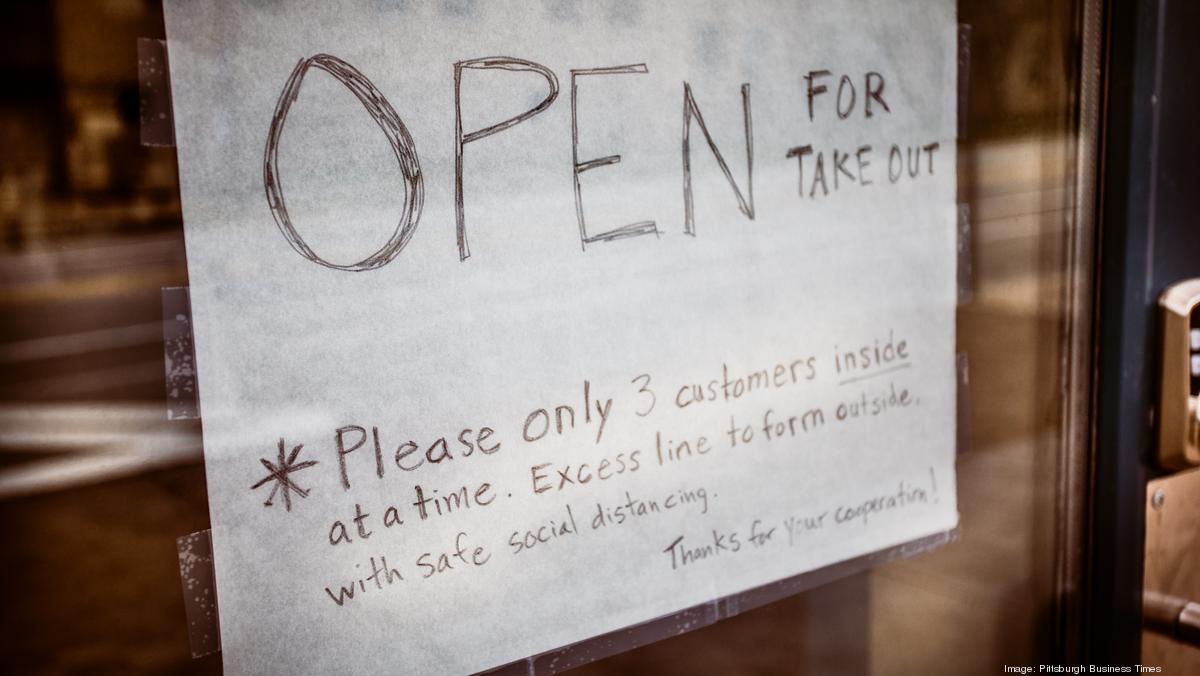 OPEN FOR
TAKE OUT
* Please only 3 customers inside
at a time. Excess line to form outside.
with safe social distancing.
Thanks for your cooperation!
Image: Pittsburgh Business Times